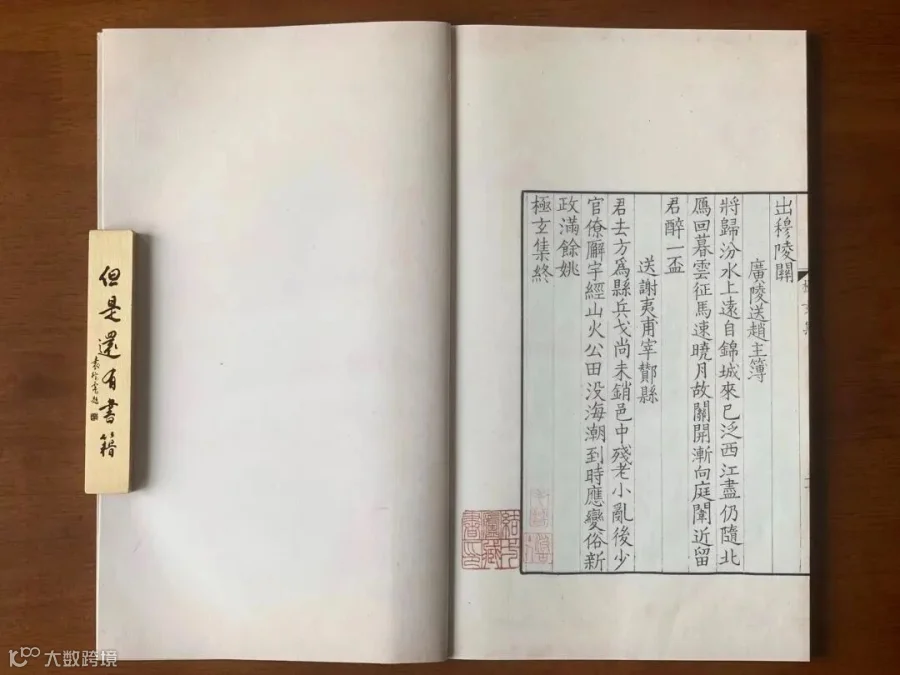 出穆陵關
廣陵送趙主簿
將歸汾水上遠自錦城來已泛西江盡仍隨北
鴈回暮雲征馬速曉月故關開漸向庭闈近留
君醉一盃
送謝夷甫宰鄮縣
君去方為縣兵戈尚未銷邑中殘老小亂後少
官僚廨宇經山火公田没海潮到時應變俗新
政滿餘姚
極玄集終
但是還有書籍
大数跨境